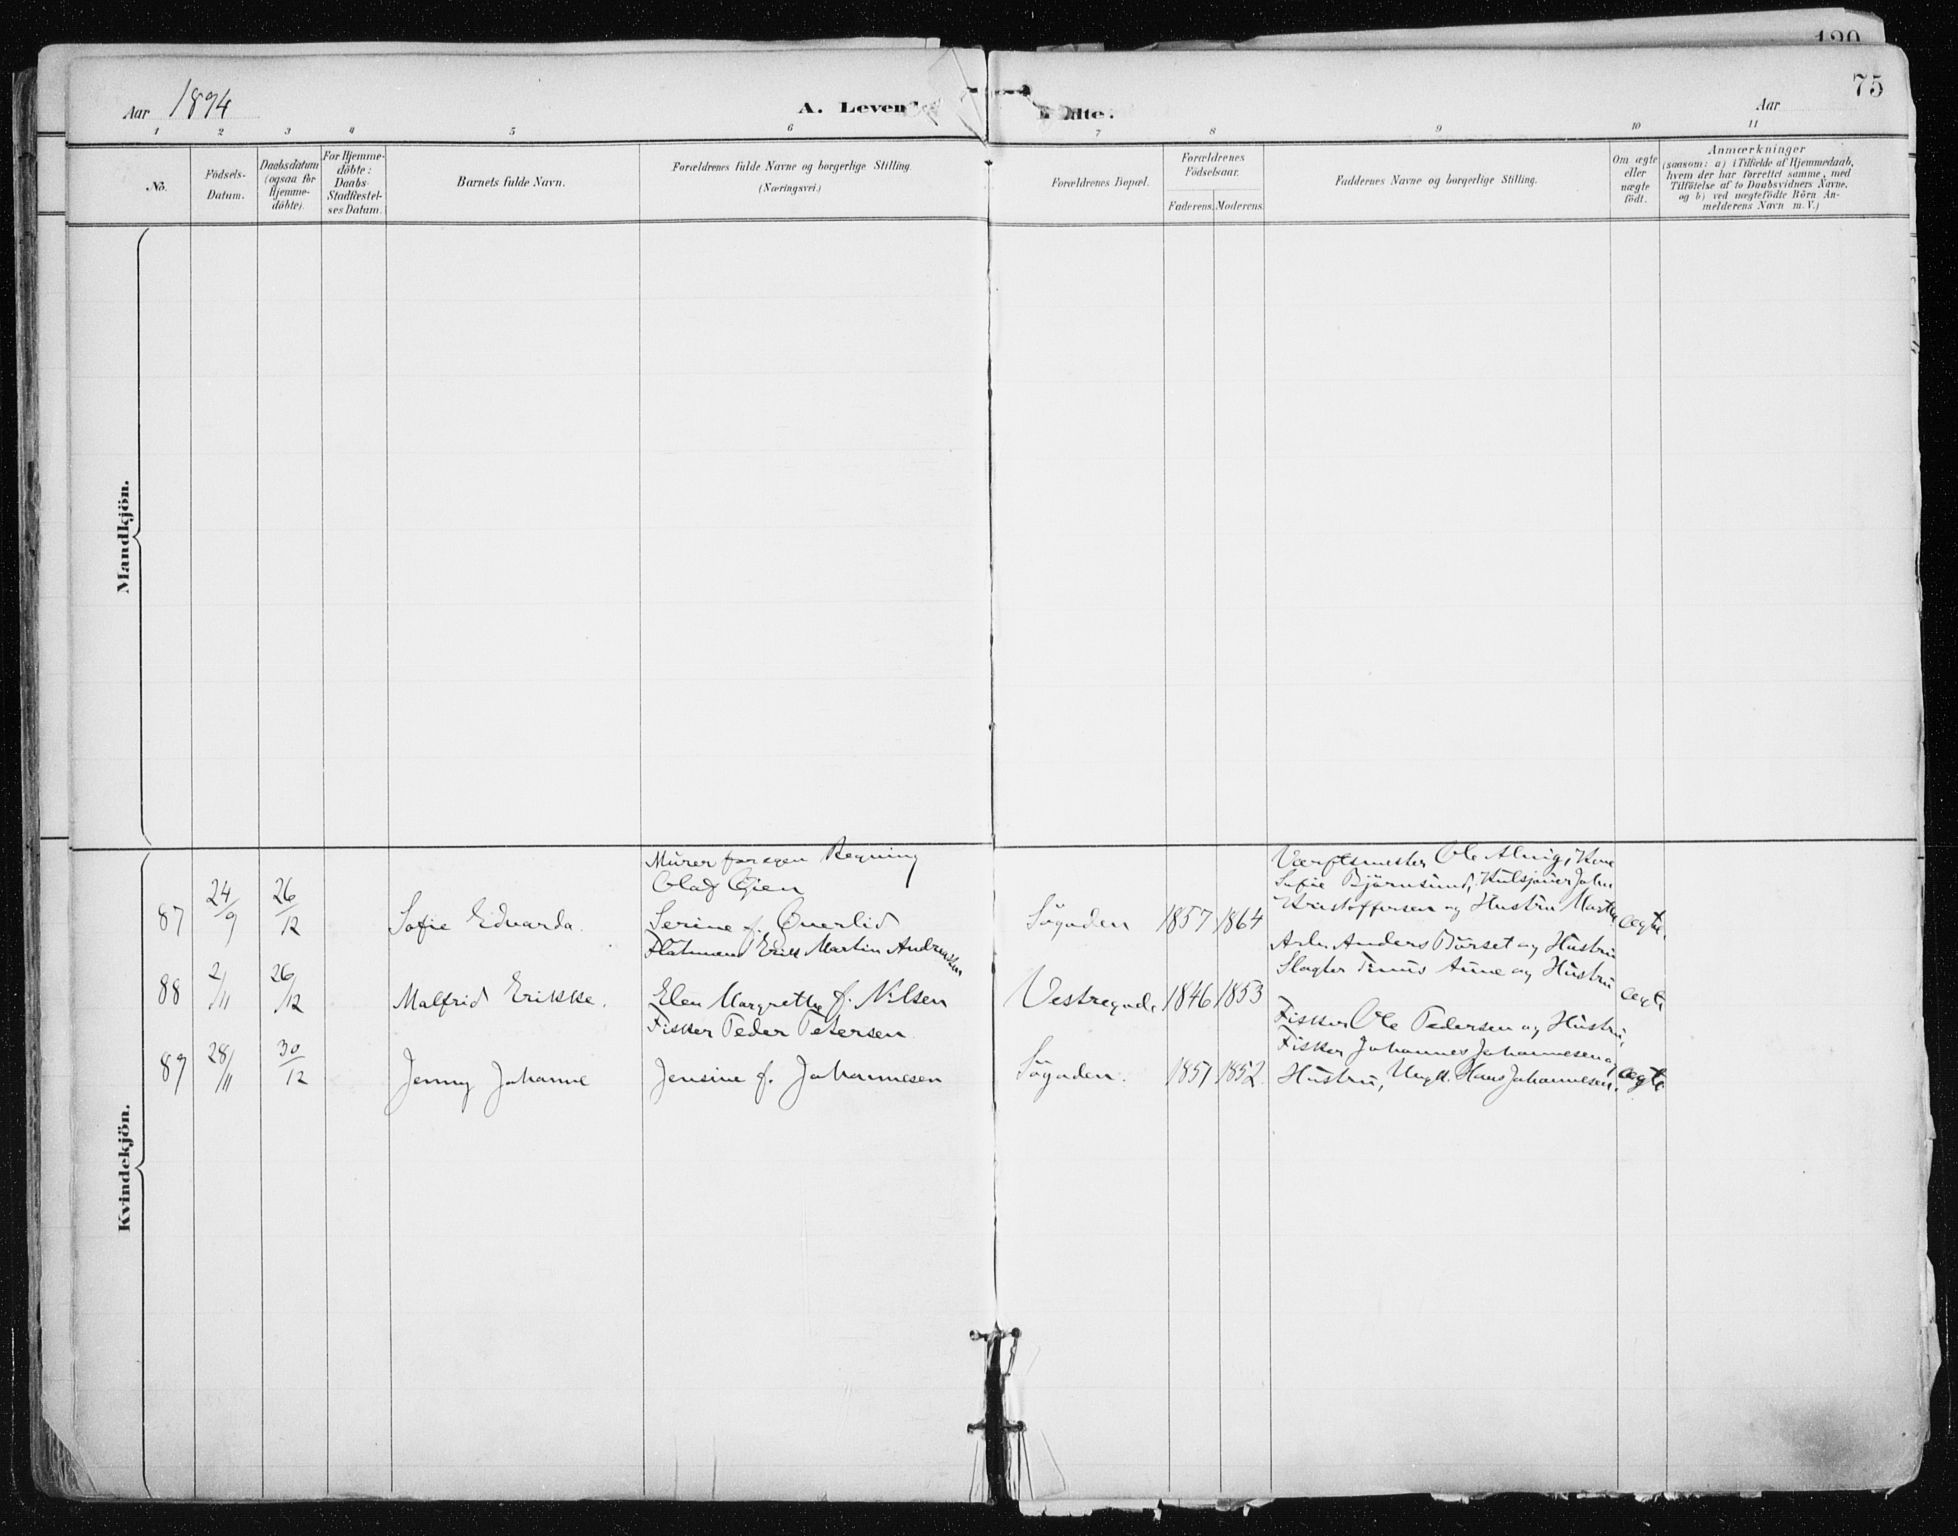 120
75
Aar 1894
A. Levende
dte.
Aar
1 2 3 4 5 6 7 8 9 10 11
No.
Födsels-
Datum.
Daabsdatum
(ogsaa for
Hjemme-
döbte).
For Hjemme-
döbte:
Daabs-
Stadfæstel-
ses Datum.
Barnets fulde Navn.
Forældrenes fulde Navne og borgerlige Stilling.
(Næringsvei.)
Forældrenes Bopæl.
Forældrenes
Födselsaar.
Faderens. Moderens.
Faddernes Navne og borgerlige Stilling.
Om ægte
eller
uægte
födt.
Anmærkninger
(saasom: a) i Tilfælde af Hjemmedaab,
hvem der har forrettet samme, med
Tilföielse af to Daabsvidners Navne,
og b) ved uægtefödte Börn An-
melderens Navn m. V.)
Mandkjön.
Kvindekjön.
87
24/9
26/12
Sofie Edvarda.
Murer for egen Regning
Olaf Öien
Serine f. Överlid
Sögaden
1857
1864
Værftsmester Ole Alvig, Kone
Sofie Björnsund, Kulsjouer John
Kristoffersen og Hustru Marthe
Arb. Anders Börset og Hustru
ægte.
88
2/11
26/12
Malfrid Erikke.
Erik Martin Andreassen
Elen Margrethe f. Nilsen
Vestregade
1846
1853
Slagter Tinus Aune og Hustru
ægte
89
28/11
30/12
Jenny Johanne
Fisker Peder Petersen
Jensine f. Johannesen
Sögaden.
1851
1852.
Fisker Ole Pedersen og Hustru,
Fisker Johannes Johannesen og
Hustru, Ungk. Hans Johannesen.
ægte